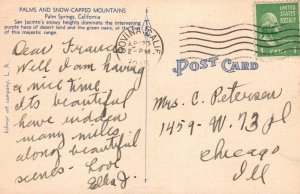 PALMS AND SNOW-CAPPED MOUNTAINS
Palm Springs, California
San Jacinto's snowy heights dominate the intervening
purple haze of desert land and the green oasis, at the foot
of this majestic range.
Dear Frances
Well I am having
a nice time
Its beautiful
have ridden
many miles
along beautiful
scenes - Love
Ella J.
COVINA, CALIF.
2 - PM
1 CENT 1
POST CARD
Mrs. C. Peterson
1459 - W. 73 pl
Chicago
Ill